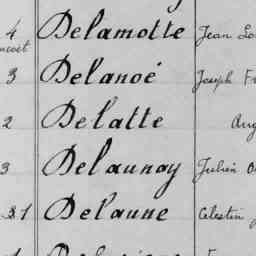 4 Delamotte Jean
3 Delanoé Joseph
2 Delatte
3 Delaunay Julien
31 Delaune Celestin